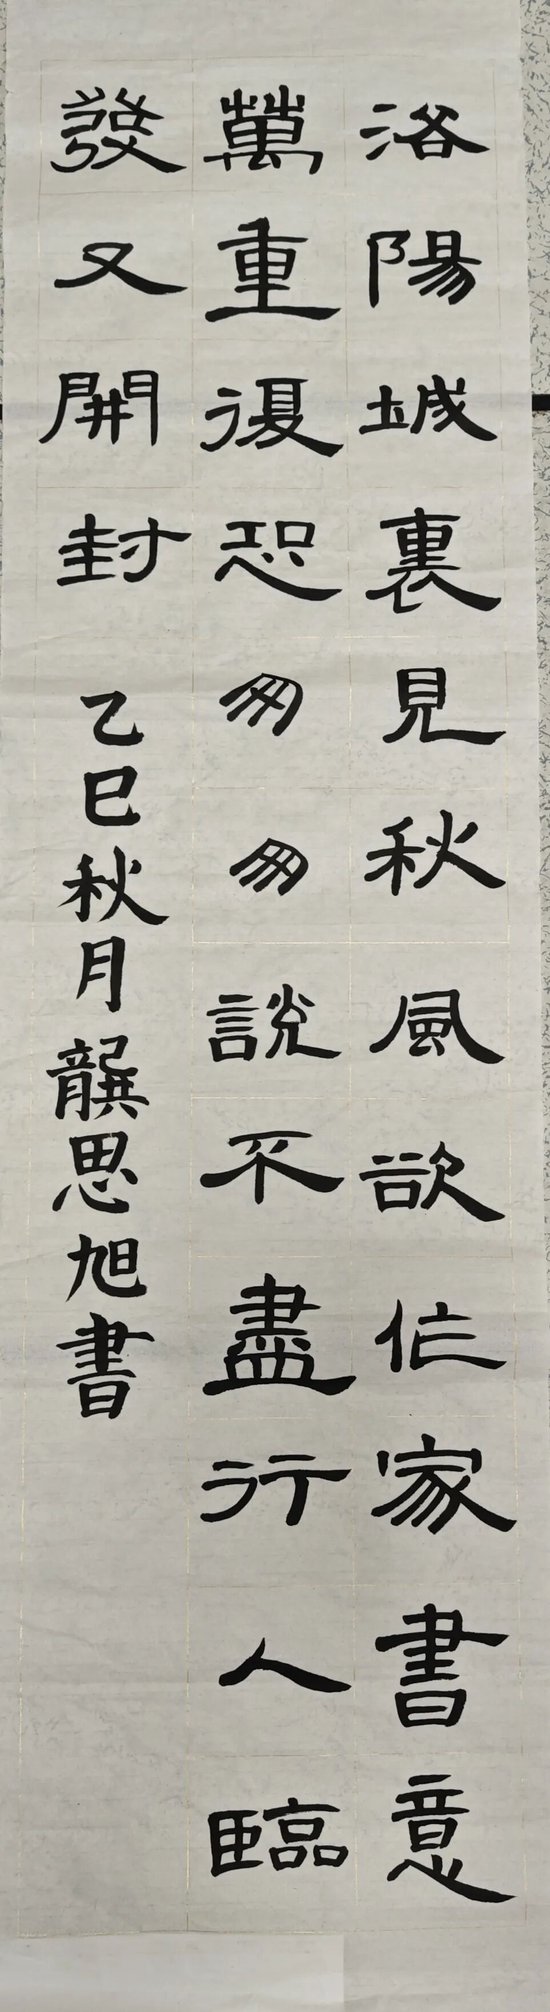 洛陽城裏見秋風欲作家書意
萬重復恐匆匆說不盡行人臨
發又開封
乙巳秋月龔思旭書